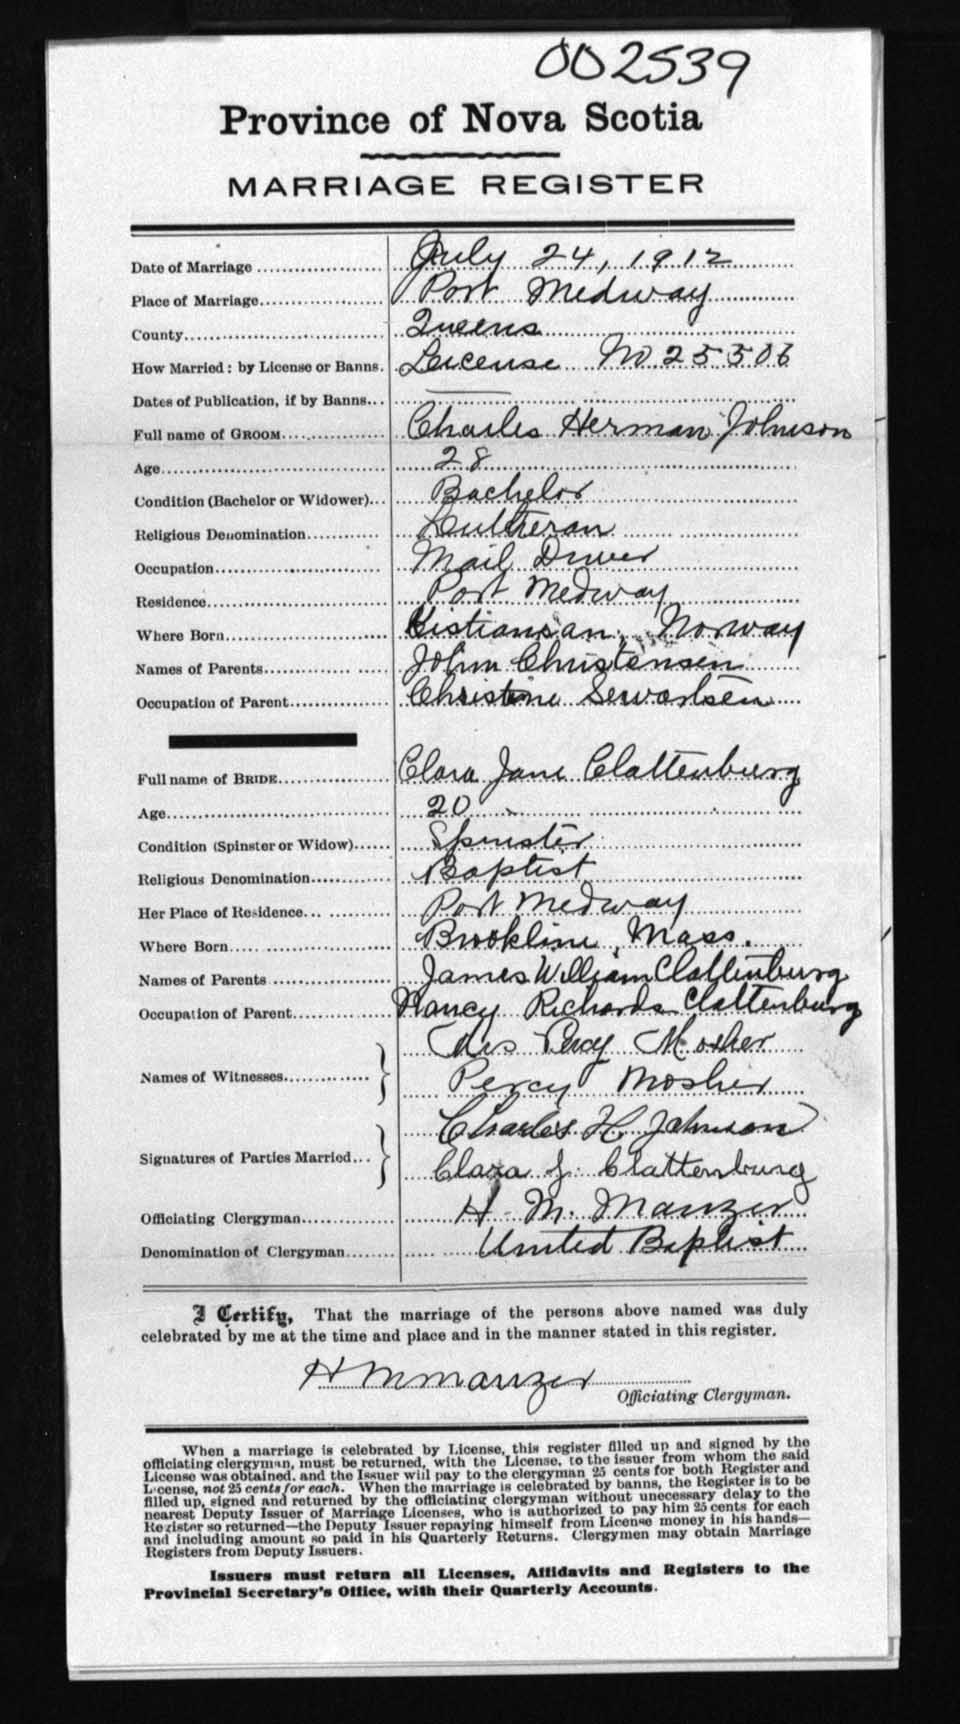 002539
Province of Nova Scotia
MARRIAGE REGISTER
Date of Marriage July 24, 1912
Place of Marriage Port Medway
County Queens
How Married: by License or Banns. License No 25506
Dates of Publication, if by Banns
Full name of GROOM Charles Herman Johnson
Age 28
Condition (Bachelor or Widower) Bachelor
Religious Denomination Lutheran
Occupation Mail Driver
Residence Port Medway
Where Born Kistiansan, Norway
Names of Parents John Christensen
Occupation of Parent Christine
Full name of BRIDE Clara Jane Clattenburg
Age 20
Condition (Spinster or Widow) Spinster
Religious Denomination Baptist
Her Place of Residence Port Medway
Where Born Brookline, Mass.
Names of Parents James William Clattenburg
Occupation of Parent Nancy Richards Clattenburg
Mrs Percy Mosher
Names of Witnesses
Percy Mosher
Charles H Johnson
Signatures of Parties Married
Clara J. Clattenburg
Officiating Clergyman H. M. Manzer
Denomination of Clergyman United Baptist
I Certify, That the marriage of the persons above named was duly
celebrated by me at the time and place and in the manner stated in this register.
H M Manzer
Officiating Clergyman.
When a marriage is celebrated by License, this register filled up and signed by the
officiating clergyman, must be returned, with the License, to the issuer from whom the said
License was obtained, and the Issuer will pay to the clergyman 25 cents for both Register and
License, not 25 cents for each. When the marriage is celebrated by banns, the Register is to be
filled up, signed and returned by the officiating clergyman without unnecessary delay to the
nearest Deputy Issuer of Marriage Licenses, who is authorized to pay him 25 cents for each
Register so returned—the Deputy Issuer repaying himself from License money in his hands—
and including amount so paid in his Quarterly Returns. Clergymen may obtain Marriage
Registers from Deputy Issuers.
Issuers must return all Licenses, Affidavits and Registers to the
Provincial Secretary's Office, with their Quarterly Accounts.